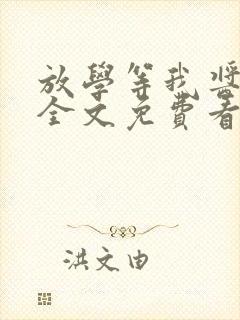 放學等我 將
全文免費看
洪文由